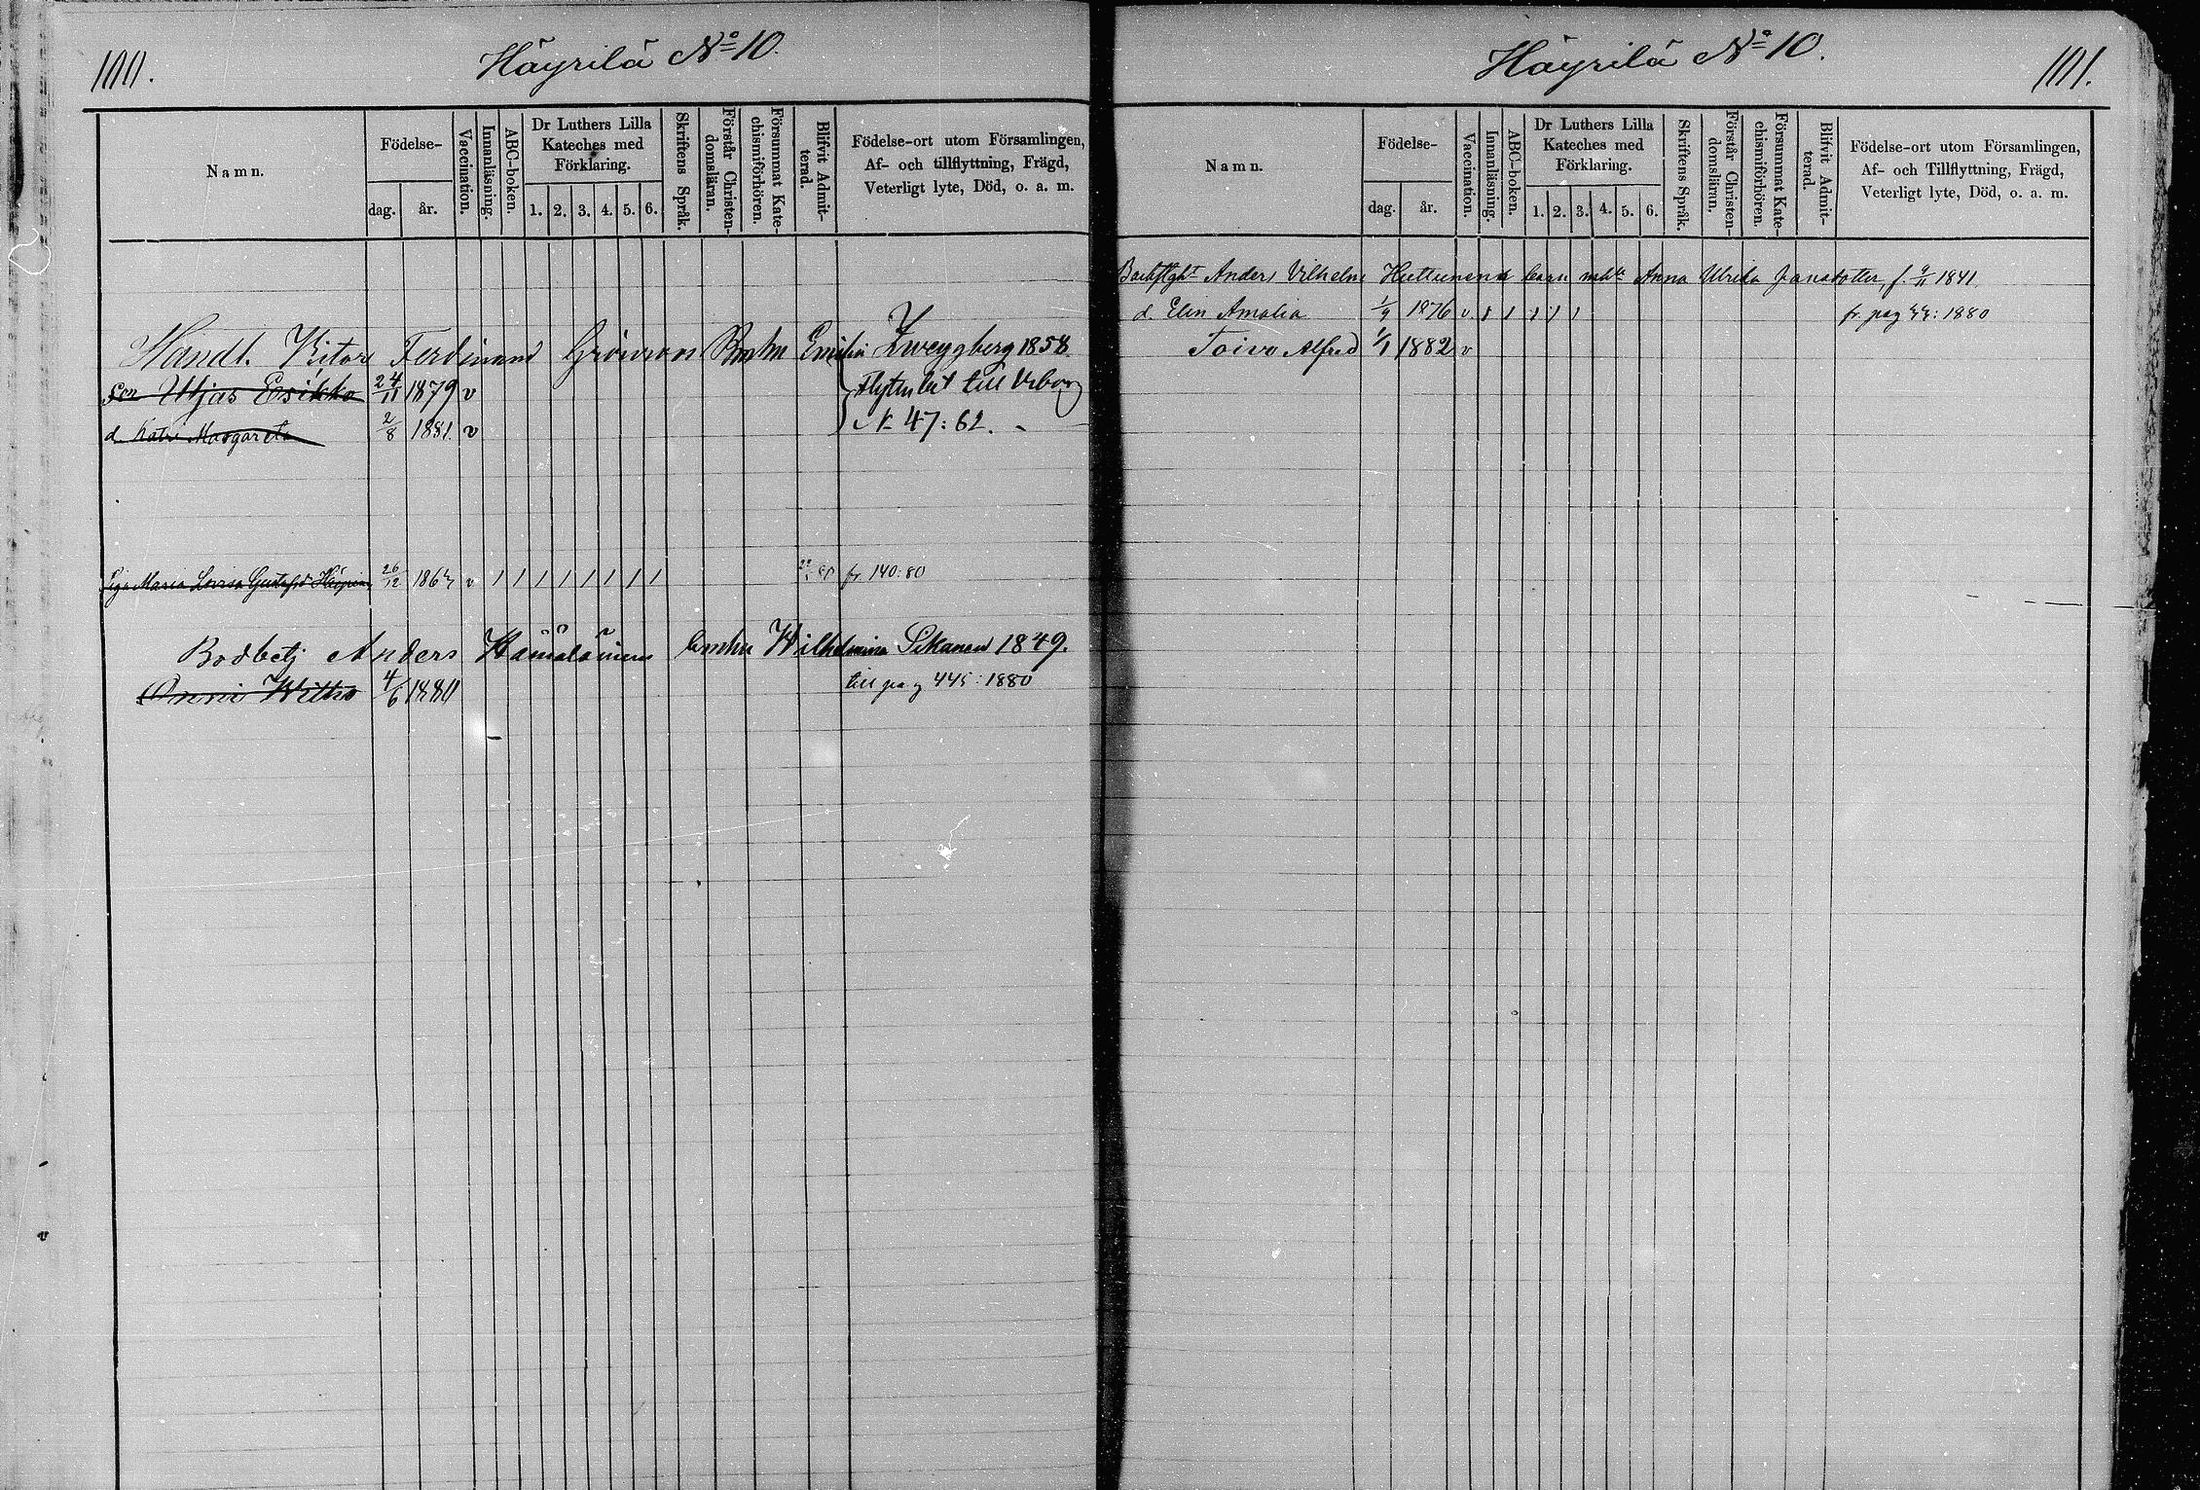 100.
Häyrilä No 10.
Namn.
Födelse-
dag.
år.
Vaccination.
Innanläsning.
ABC-boken.
Dr Luthers Lilla
Kateches med
Förklaring.
1. 2. 3. 4. 5. 6.
Skriftens Språk.
Förstår Christen-
domsläran.
Försummat Kate-
chismiförhören.
Blifvit Admit-
terad.
Födelse-ort utom Församlingen,
Af- och tillflyttning, Frägd,
Veterligt lyte, Död, o. a. m.
Handl. Viktor Ferdinand Emilia Zweygberg 1858.
Son Utjas Esikko 24/11 1879 v till Viborg
d. Katri Margareta 2/8 1881. v N 47:62.
Maria Lovisa Gustafsd 26/12 186 v / / / / / / / / fr. 140:80
Anders Hämäläinen Wilhelmina Sikanen 1849.
Onni Wilho 4/6 1880 till pag 445:1880
Häyrilä No 10.
101.
Namn.
Födelse-
dag.
år.
Vaccination.
Innanläsning.
ABC-boken.
Dr Luthers Lilla
Kateches med
Förklaring.
1. 2. 3. 4. 5. 6.
Skriftens Språk.
Förstår Christen-
domsläran.
Försummat Kate-
chismiförhören.
Blifvit Admit-
terad.
Födelse-ort utom Församlingen,
Af- och Tillflyttning, Frägd,
Veterligt lyte, Död, o. a. m.
Anders Vilhelm Huttunens barn Anna Ulrika Jansdotter, f. 9/11 1841
d. Elin Amalia 1/9 1876 v. / / / / / fr. pag 44:1880
Toivo Alfred 1/1 1882 v